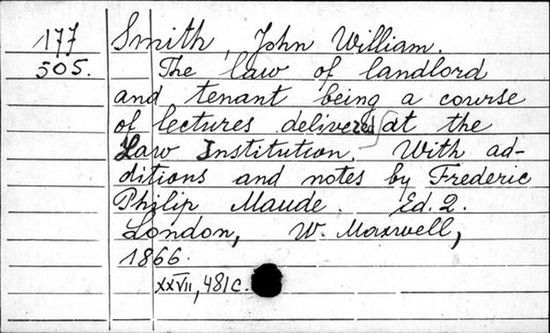 177 Smith, John William.
505. The law of landlord
and tenant being a course
of lectures delivered at the
Law Institution. With ad-
ditions and notes by Frederic
Philip Maude. Ed. 2.
London, W. Maxwell,
1866.
XXVII, 481 c.